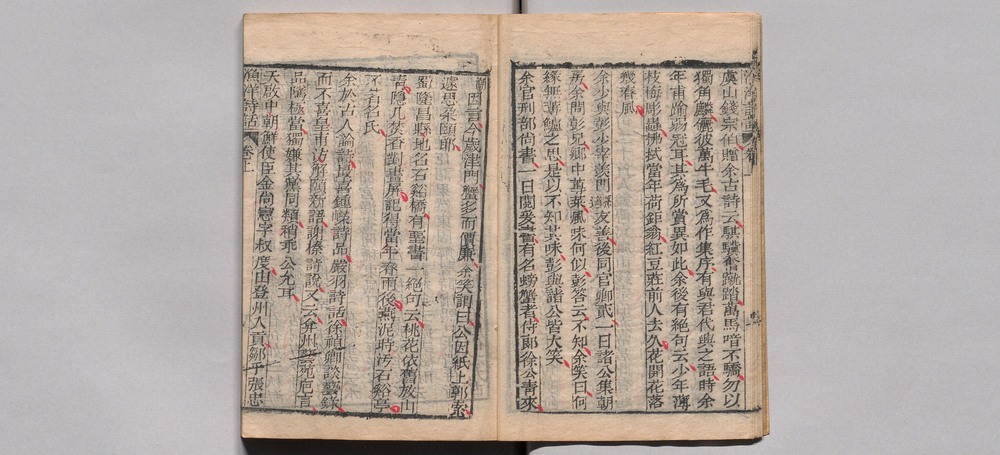 虞山錢宗伯贈余古詩云騏驥奮蹴踏萬馬喑不驕勿以
獨角麟儷彼萬牛毛又為作集序有與君代興之語時余
年甫踰弱冠耳其為所賞異如此余後有絕句云少年薄
技悔彫蟲拂拭當年荷鉅翁紅豆莊前人去久花開花落
幾春風
余少與彭少宰羨門孫遹友善後同官卿貳一日諸公集朝
房余問彭兄鄉中蓴菜風味何似彭答云不知余笑曰何
緣無蓴鱸之思是以不知其味彭與諸公皆大笑
余官刑部尚書一日閱爰書有名螃蟹者侍郎徐公青來
因言今歲津門蟹多而價廉余笑謂曰公因紙上郭索
遂思朵頤耶
蜀隆昌縣地名石谿橋有壁書一絕句云桃花依舊放山
青隱几焚香對畫屏記得當年春雨後燕泥時汚石谿亭
不著名氏
余於古人論詩最喜鍾嶸詩品嚴羽詩話徐禎卿談藝錄
而不喜皇甫汸解頤新語謝榛詩說又云弇州藝苑卮言
品隲極當獨嫌其黨同類稍乖公允耳
天啟中朝鮮使臣金尚憲字叔度由登州入貢鄒平張忠
漁洋詩話 卷上